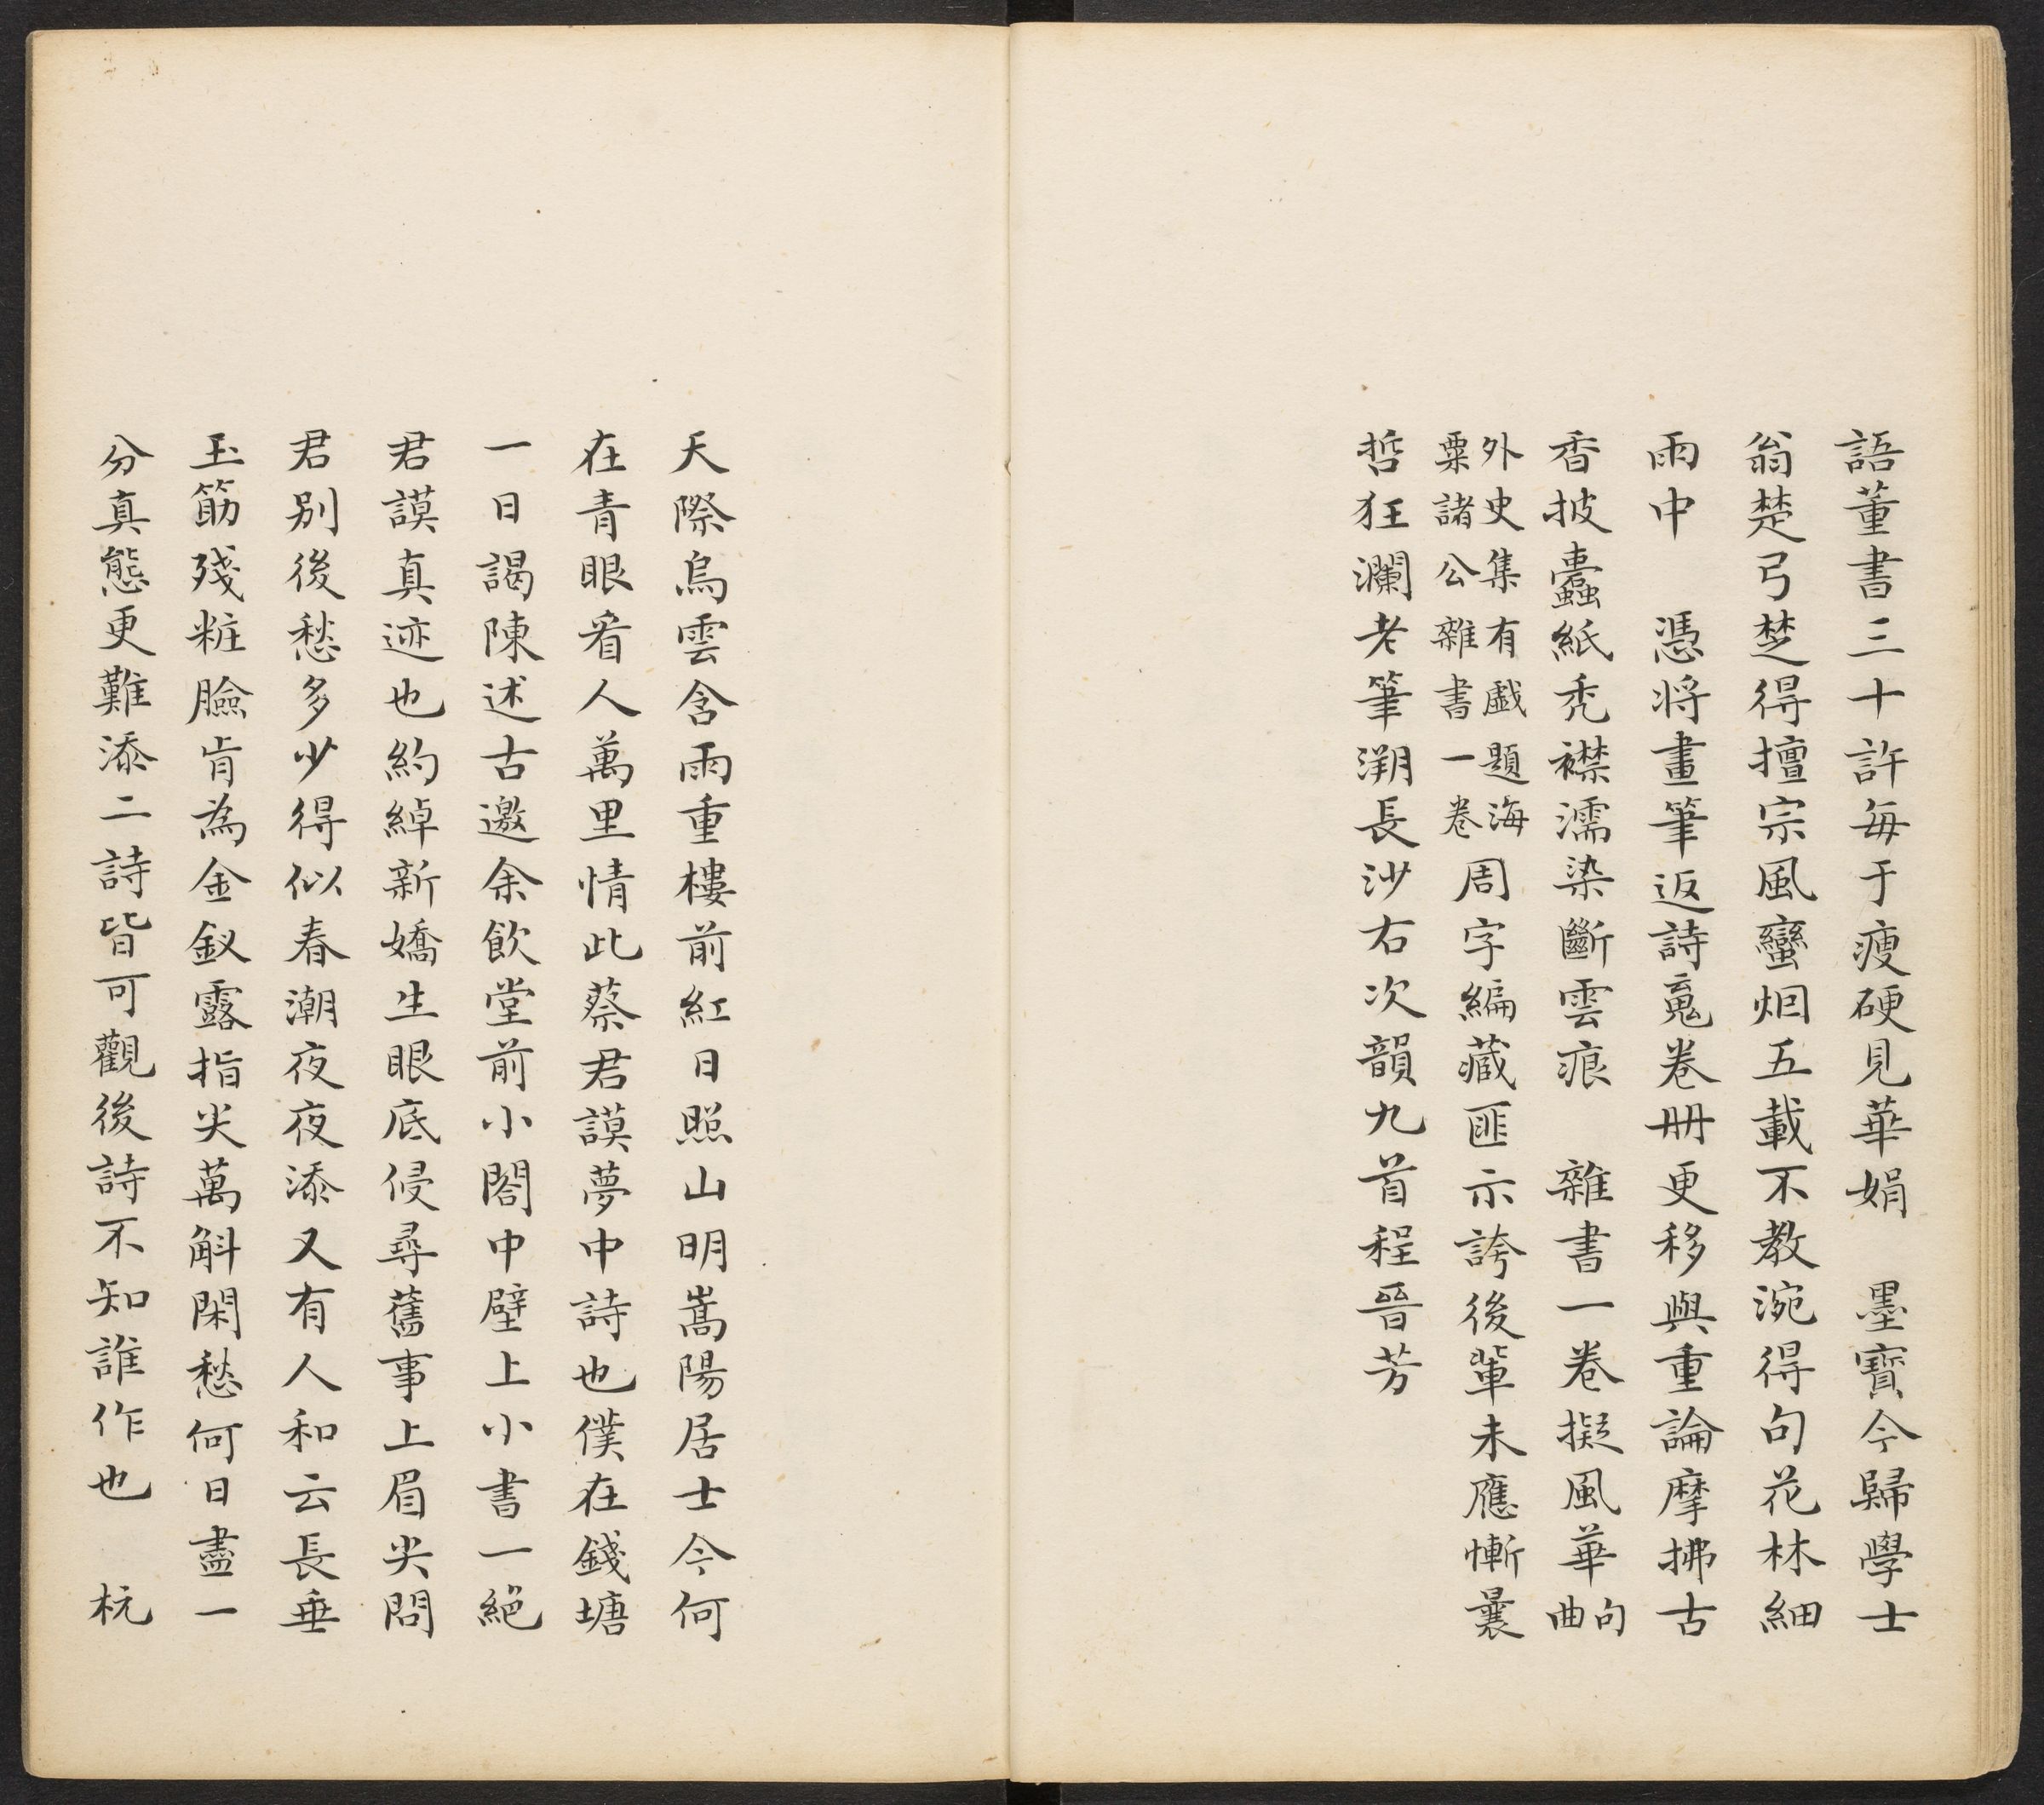 語董書三十許每于瘦硬見華娟　墨寶今歸學士
翁楚弓楚得擅宗風蠻烟五載不教涴得句花林細
雨中　憑將畫筆返詩䰟卷冊更移與重論摩拂古
香披蠹紙禿襟濡染斷雲痕　雜書一卷擬風華句曲
外史集有戲題海粟諸公雜書一卷周字編藏匪示誇後輩未應慚曩
哲狂瀾老筆溯長沙右次韻九首程晉芳
天際烏雲含雨重樓前紅日照山明嵩陽居士今何
在青眼看人萬里情此蔡君謨夢中詩也僕在錢塘
一日謁陳述古邀余飲堂前小閤中壁上小書一絕
君謨真迹也約綽新嬌生眼底侵尋舊事上眉尖問
君別後愁多少得似春潮夜夜添又有人和云長垂
玉筯殘粧臉肯為金釵露指尖萬斛閑愁何日盡一
分真態更難添二詩皆可觀後詩不知誰作也　杭